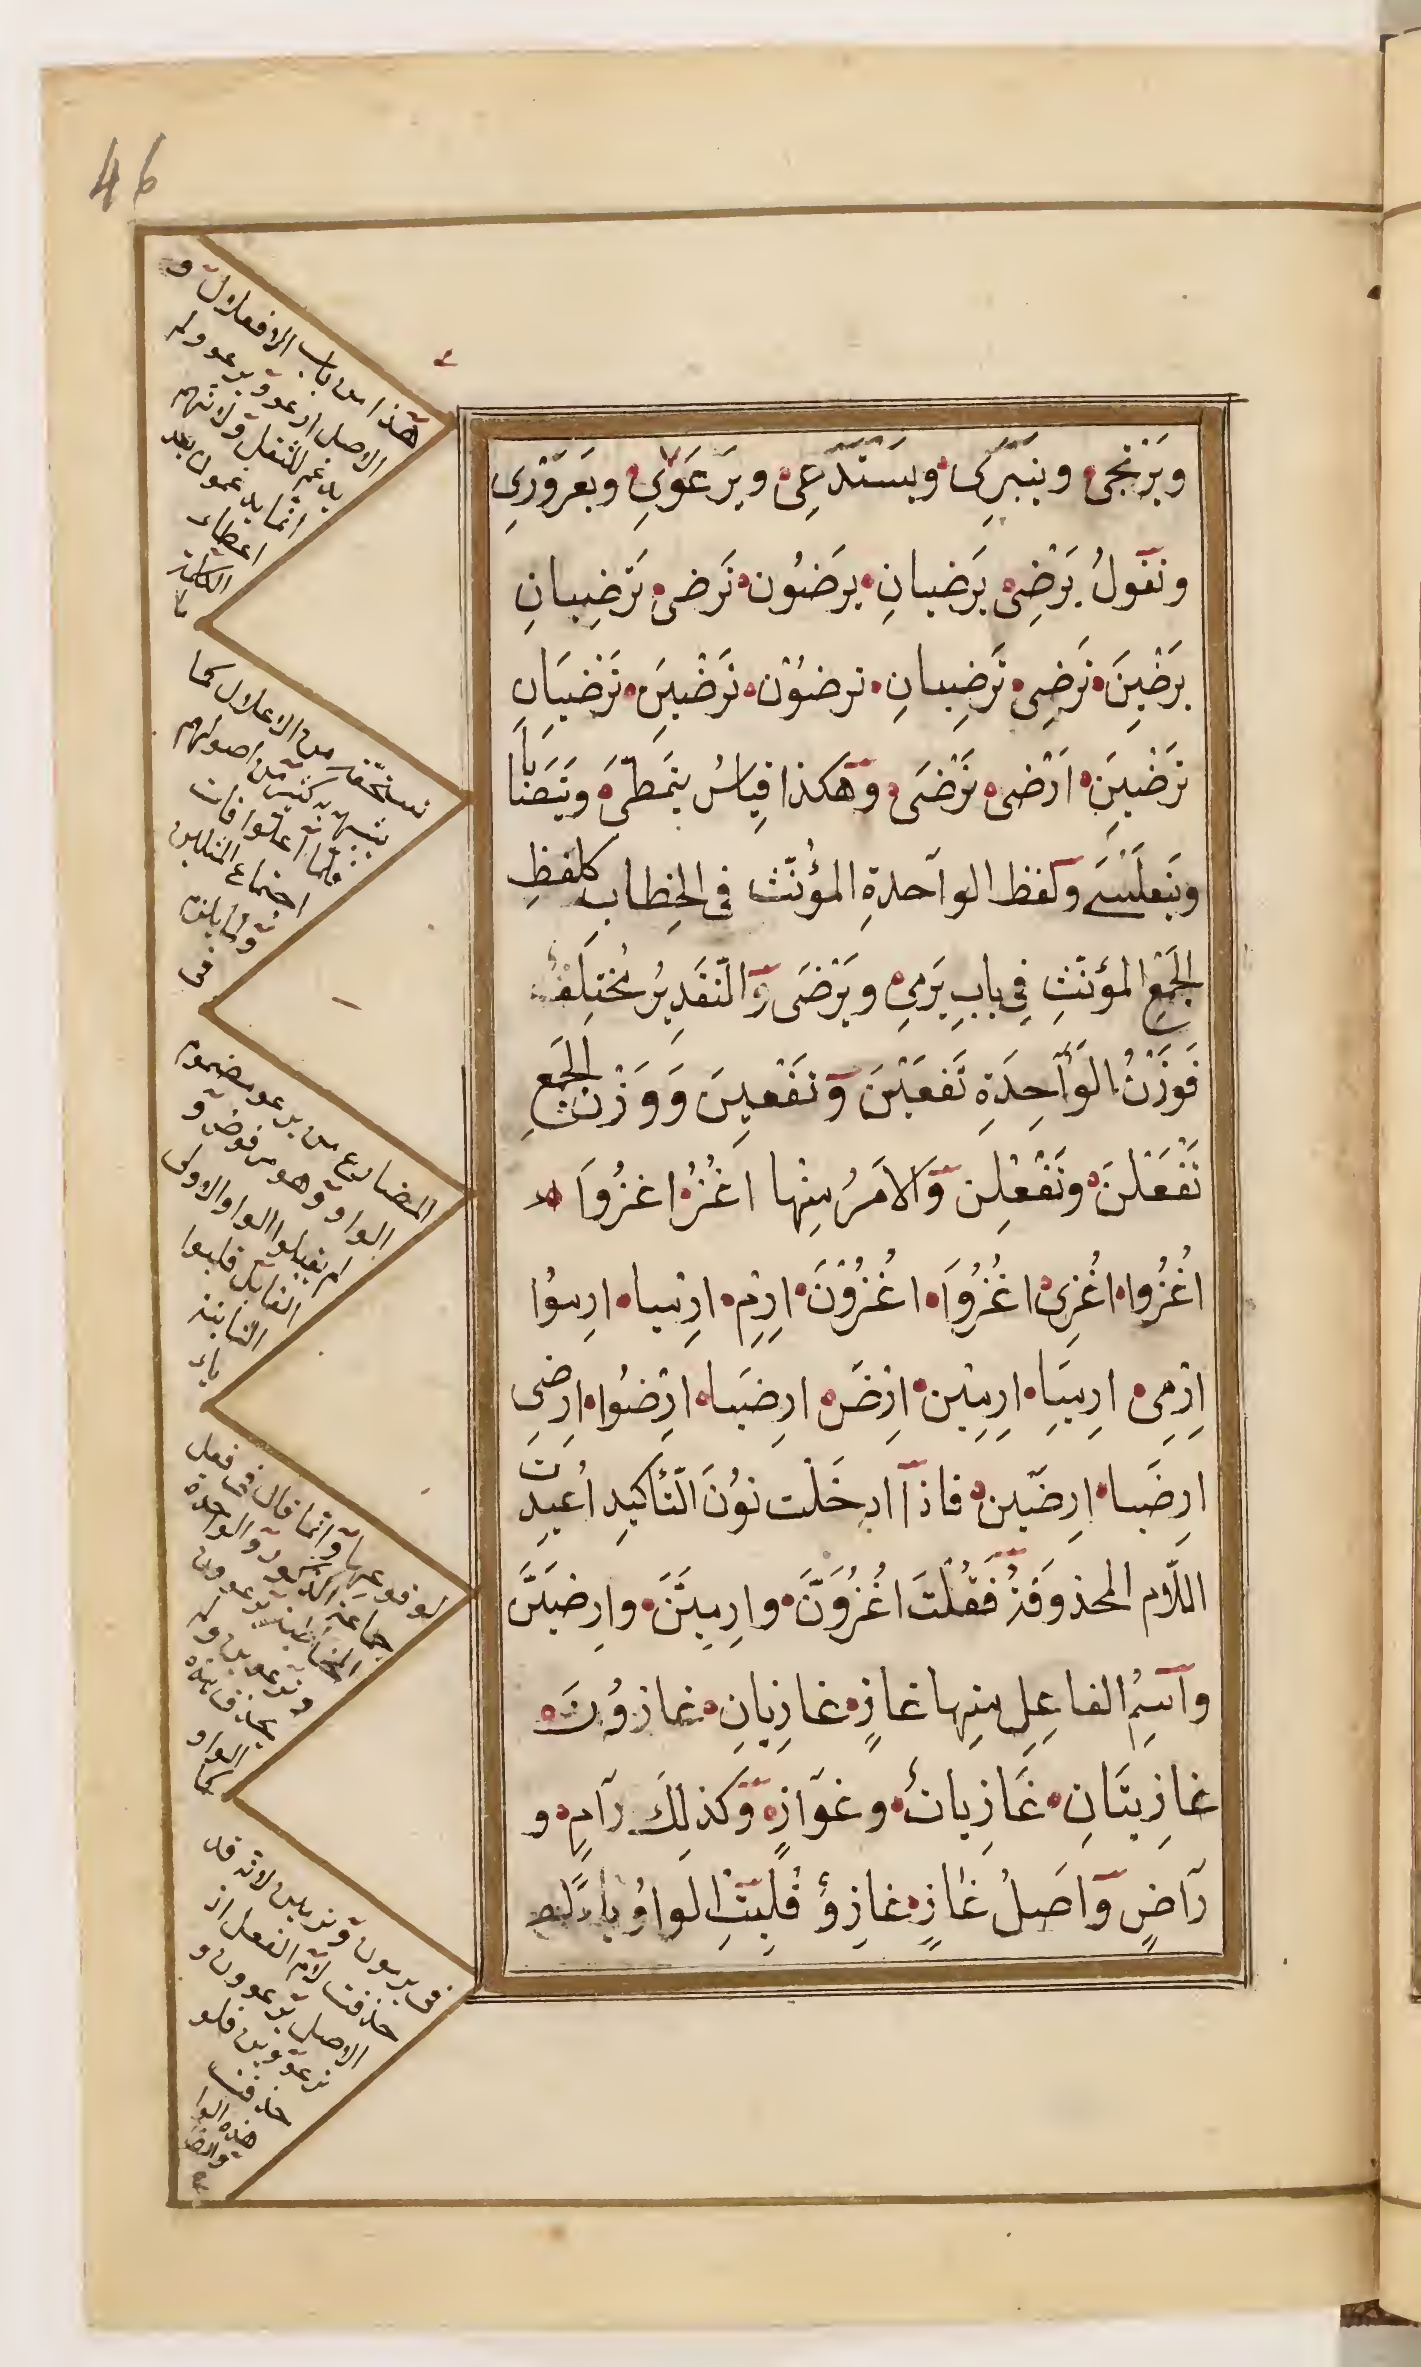 46
ويَرْتجى وينبَرِى ويَسْتَدْعِى ويَرْعَوِى ويَعْرَوْرِى
ونقولُ يَرْضِى يَرَضيانِ يرضَون تَرضى تَرْضِيانِ
يرَضْيِنَ تَرَضِى تَرَضِيانِ ترضوُن تَرَضْيِنَ تَرْضَيَانِ
ترَضْيِنَ اَرْضى نَرْضَى وهٓكذا قِياسُ يتَمطّىَ ويَتَصَابا
ويَتَقَلْسَے ولفظ الوآحدةِ المؤُنّث فى الخِطاب كلفظِ
الجَمْعِ المؤنّثِ فِى بابِ يَرْمِى ويَرْضَى وَالتّقَدِيرُ مُختِلَفُ
فَوَزْنُ الوَآحِدَةِ تَفعَيْنَ وتَفْعِينَ وَوَزْنُ الجَمْعِ
تَفْعَلْنَ وتَفْعِلْن وَالامَرُ مِنْها اغْزُ اغزُوَا
اغُزُوا اغُزِى اغُزُوَا اغُزُوْنَ ارِمِ ارِميا ارِموُا
ارِمْى ارِميَا ارِمِيْن ارْضَ ارِضَيا ارِْضَوا ارِضَى
ارِضَيا ارِضَيْن فاذآ ادخَلْت نوُنَ التّأكيدِ اُعيدِت
اللّام المحذوفَةُ فَقُلْتَ اغُزُوَنَّ وارمِيَنَّ وارِضَيَنَّ
وآسَمُ الفاعِلِ مِنها غازٍ غازِيانِ غازوُنَ
غازِيتَانِ غَازِياتٌ وغوَازٍ وَكذلِكَ رَآمٍ و
رَآضٍ وآصَلُ غازٍ غازِوٌ قُلِبَتْ الواوُ ياءً
هٓذا من باب الافعلال و
الاصل ارعوو يرعوو لم
يدغم للثقل ولانهم
انما يدغمون بعد
اعطاء
الكلمة
ما
تستحقه من الاعلال كما
يشهد به كثير من اصولهم
فلمّا اعلّوا فات
اجتماع المثلين
ولم يلزم
فى
المضارع من يرعو مضموم
الواو وهو مرفوض و
لم يقلبوا الواو الاولى
الفا بل قلبوا
الثانية
ياء
لوقوعها وانما قال فى فعل
جماعة الذكور والواحدة
المخاطبة ترعوون
وترعوين ولم
يحذف هذه
الواو
كما
فى يرمون وترمين لانه قد
حذفت لام الفعل اذ
الاصل يرعوون و
ترعووين فلو
حذفت
هذه الوا